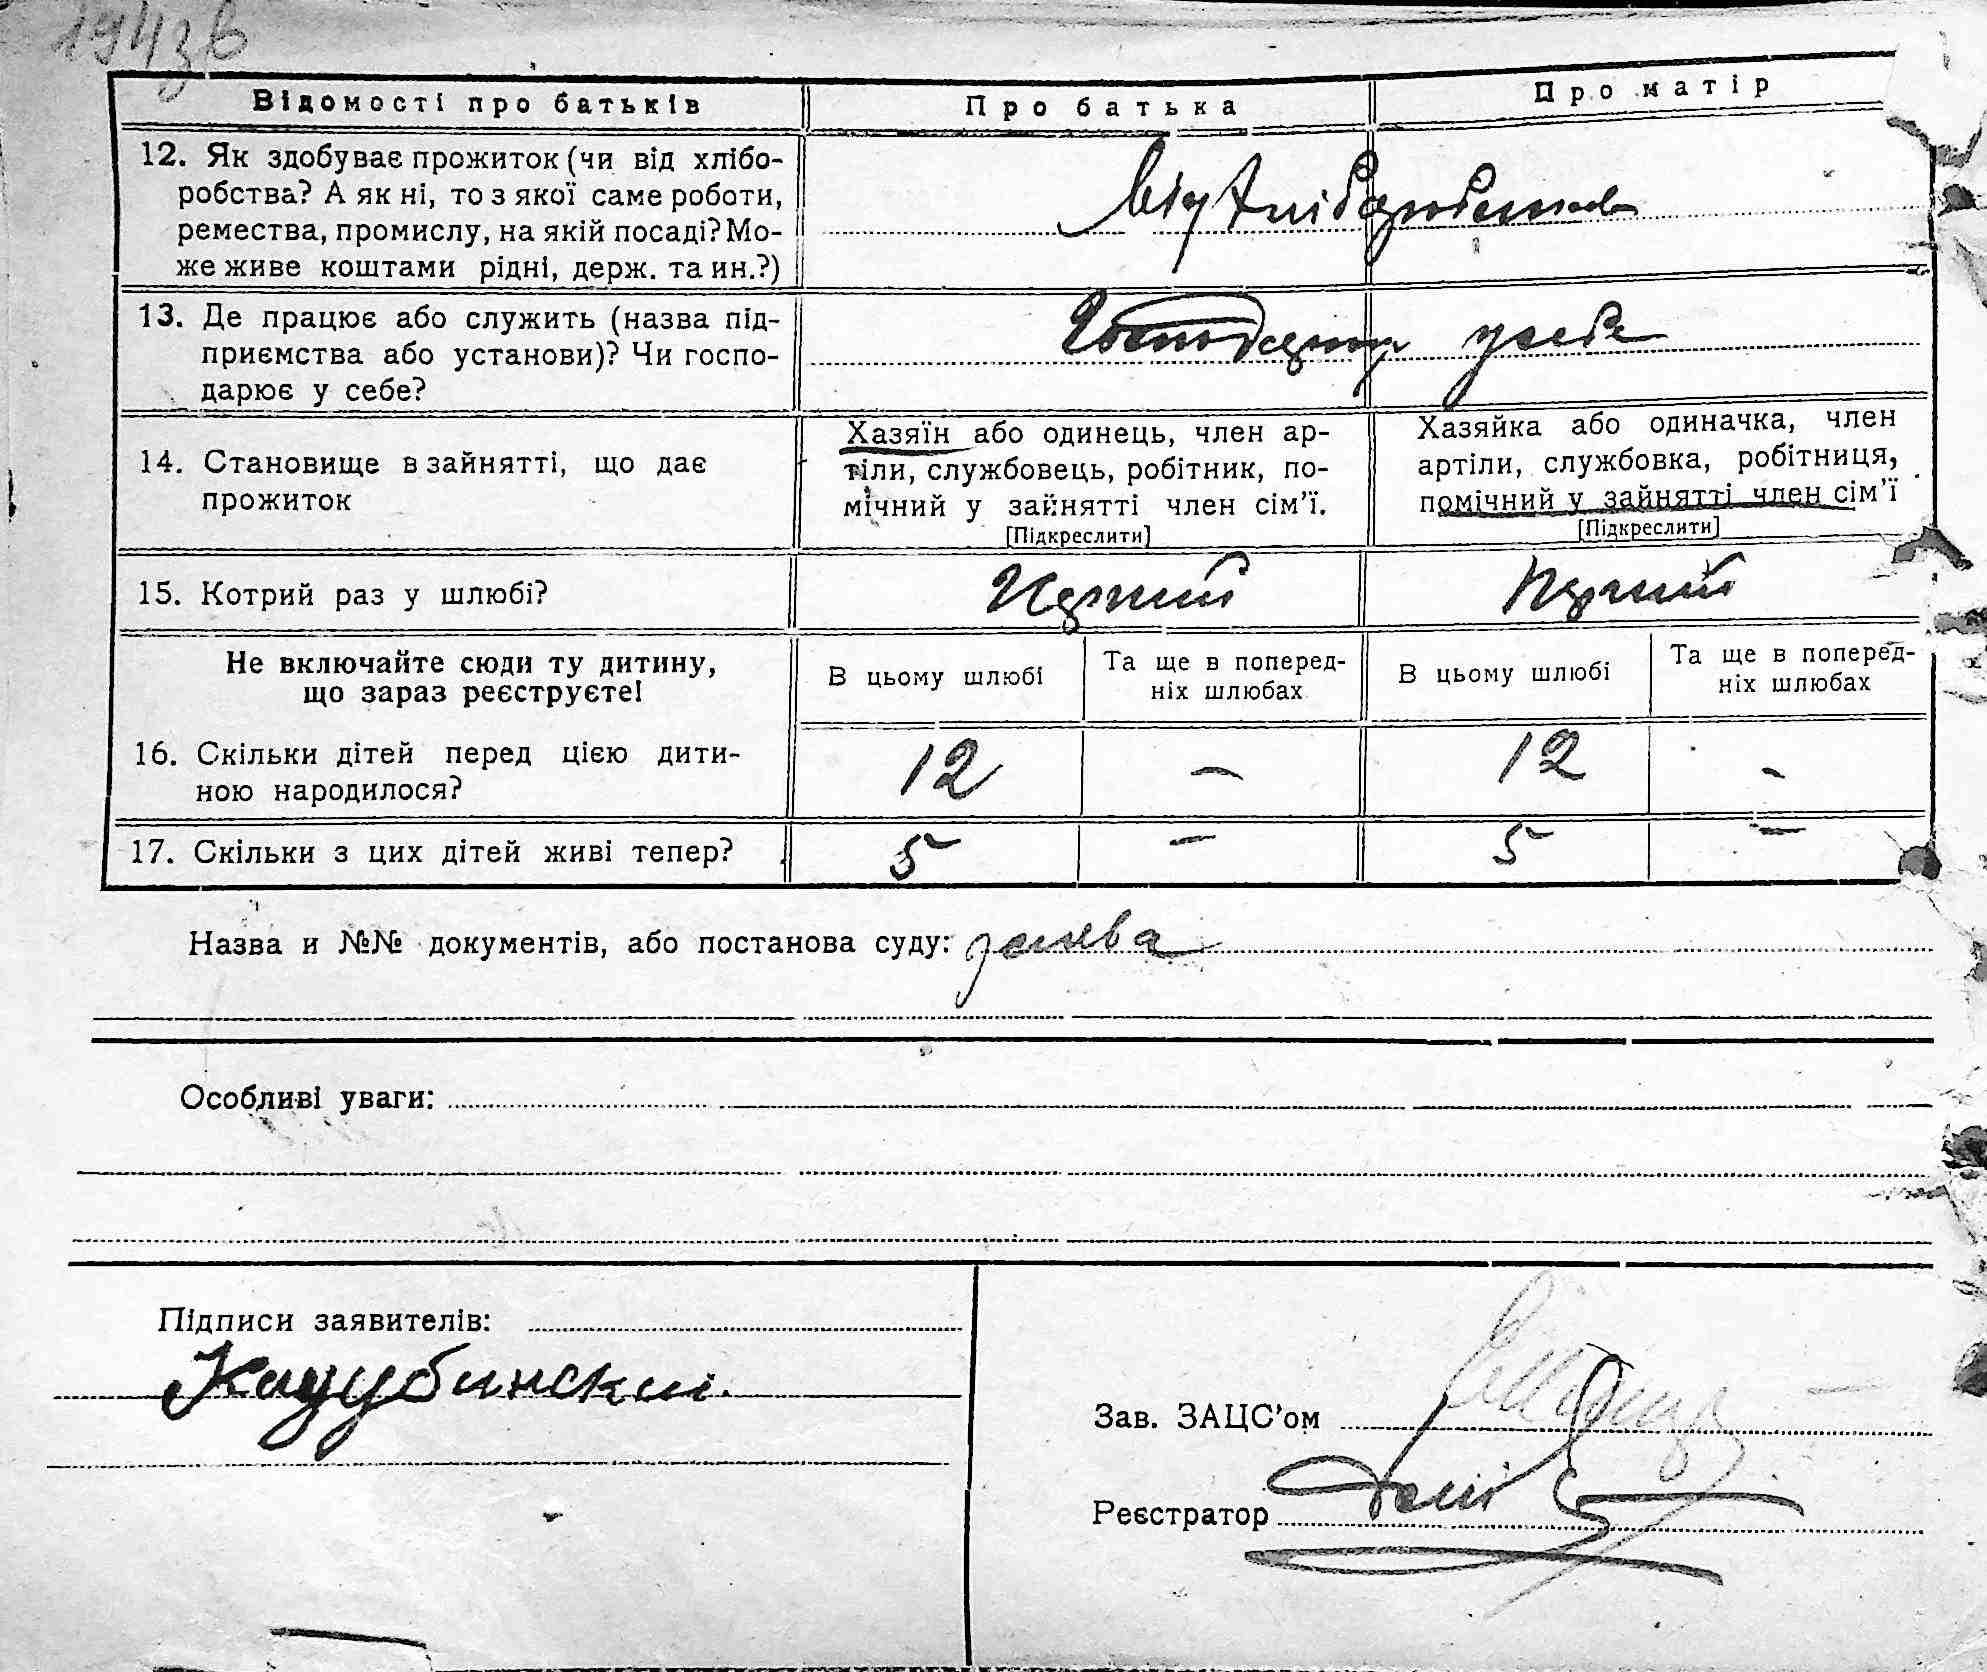 194зв
Відомості про батьків
Про батька
Про матір
12. Як здобуває прожиток (чи від хлібо-
робства? А як ні, то з якої саме роботи,
ремества, промислу, на якій посаді? Мо-
же живе коштами рідні, держ. та ин.?)
Від хліборобства
13. Де працює або служить (назва під-
приємства або установи)? Чи госпо-
дарює у себе?
Господарює у себе
14. Становище в зайнятті, що дає
прожиток
Хазяїн або одинець, член ар-
тіли, службовець, робітник, по-
мічний у зайнятті член сім'ї.
[Підкреслити]
Хазяйка або одиначка, член
артіли, службовка, робітниця,
помічний у зайнятті член сім'ї
[Підкреслити]
15. Котрий раз у шлюбі?
Перший
Перший
Не включайте сюди ту дитину,
що зараз реєструєте!
В цьому шлюбі
Та ще в поперед-
ніх шлюбах
В цьому шлюбі
Та ще в поперед-
ніх шлюбах
16. Скільки дітей перед цією дити-
ною народилося?
12
—
12
-
17. Скільки з цих дітей живі тепер?
5
—
5
—
Назва и №№ документів, або постанова суду: заява
Особливі уваги:
Підписи заявителів:
Кадубинский.
Зав. ЗАЦС'ом
Реєстратор